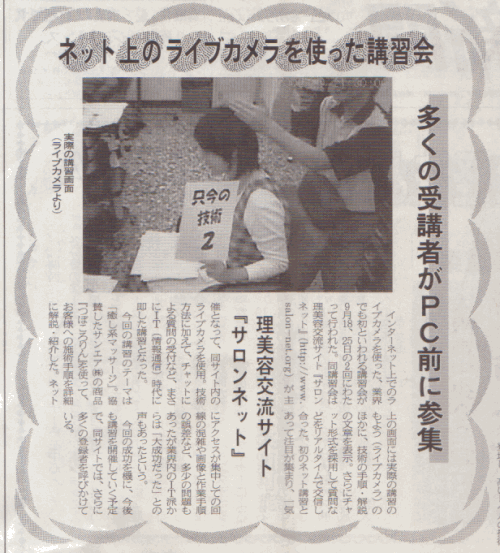 ネット上のライブカメラを使った講習会
多くの受講者がPC前に参集
実際の講習画面
(ライブカメラより)
只今の
技術
2
理美容交流サイト
『サロンネット』
インターネット上でのラ
イブカメラを使った、業界
でも初といわれる講習会が
9月18、25日の2回にわた
って行われた。同講習会は
理美容交流サイト『サロン
ネット』(http://www.
salon-net.org)が主
催となって、同サイト内の
ライブカメラを使用。技術
方法に加えて、チャットに
よる質問の受付など、まさ
にIT(情報通信)時代に
即した講習となった。
今回の講習のテーマは
「癒し系マッサージ」。協
賛したサンエフ㈱の商品
『つぼころりん』を使って、
お客様への施術手順を詳細
に解説・紹介した。ネット
上の画面には実際の講習の
もよう(ライブカメラ)の
ほかに、技術の手順・解説
の文章を表示。さらにチャ
ット形式を採用して質問な
どをリアルタイムで交信し
合った。初のネット講習と
あって注目が集まり、一気
にアクセスが集中しての回
線の混雑や画像と作業手順
の誤差など、多少の問題も
あったが業界内のIT派か
らは「大成功だった」との
声もあったという。
今回の成功を機に、今後
も講習を開催していく予定
で、同サイトでは、さらに
多くの登録者を呼びかけて
いる。